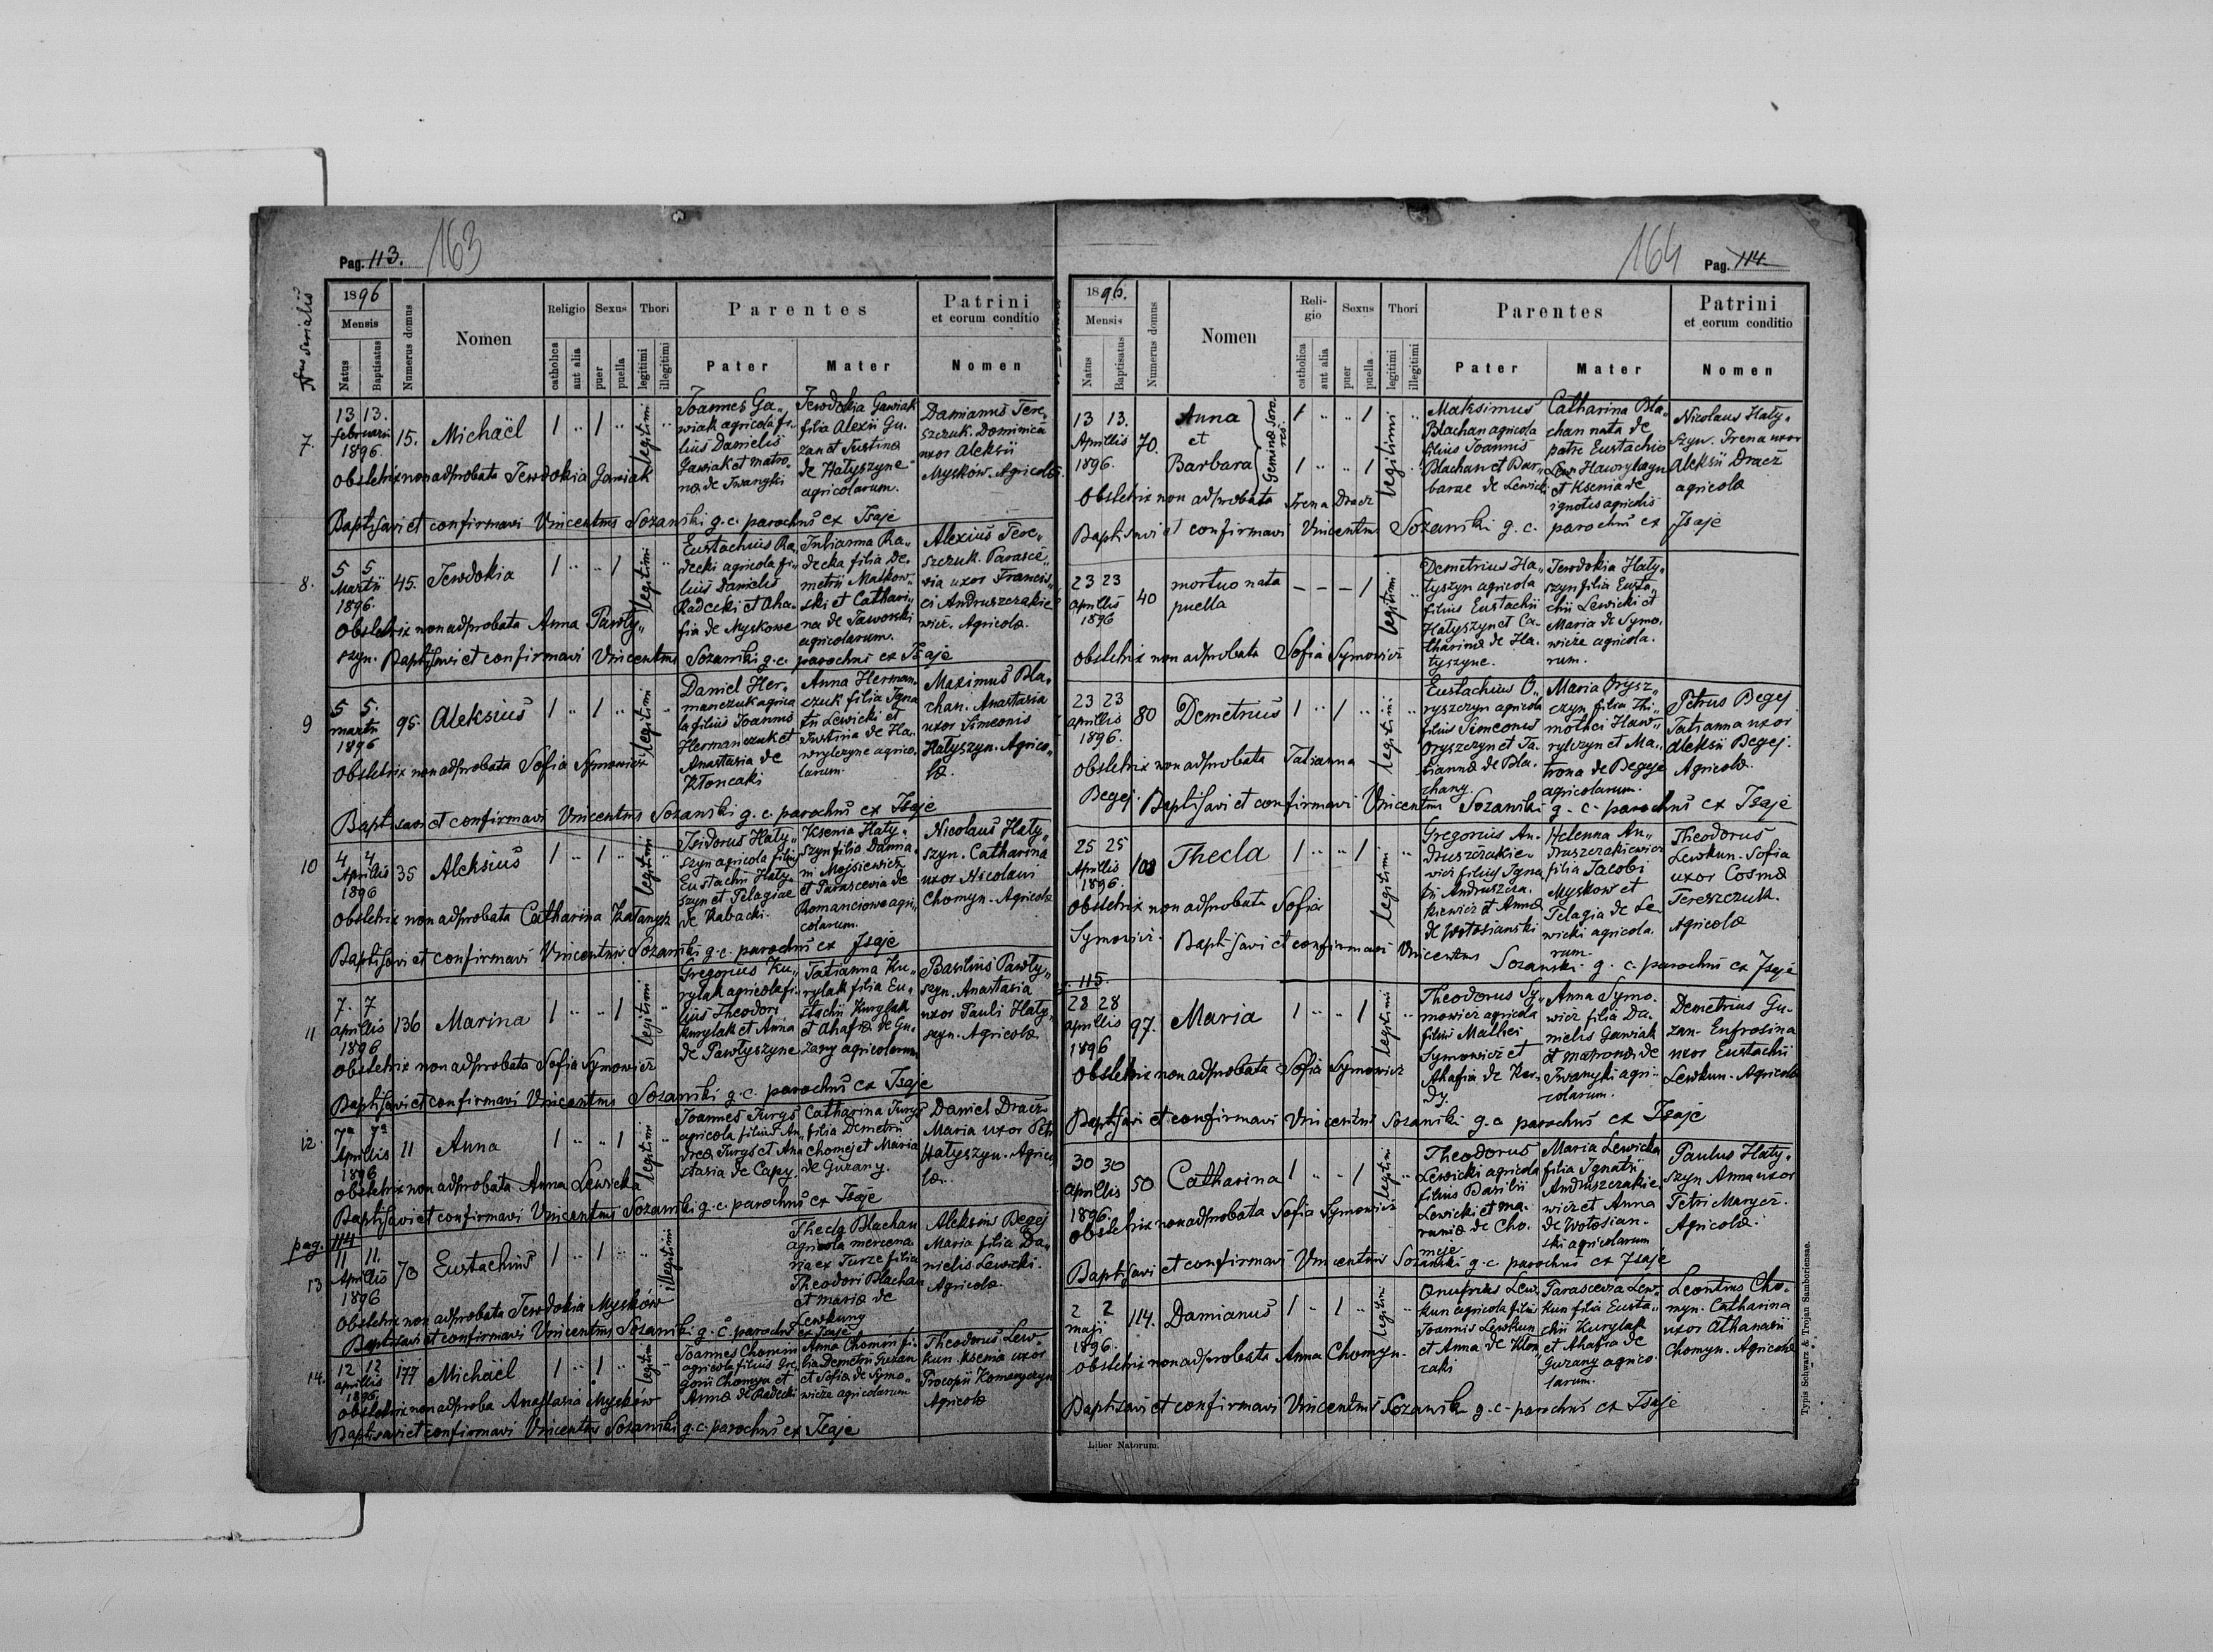 Pag. 113.
163
Nus serialis
1896
Mensis
Natus
Baptisatus
Numerus domus
Nomen
Religio
catholica
aut alia
Sexus
puer
puella
Thori
legitimi
illegitimi
Parentes
Pater
Mater
Patrini
et eorum conditio
Nomen
7.
13 13.
februarii
1896.
15.
Michaël
1 .. 1 ..
legitimi
Joannes Ga„
wiak agricola fi„
lius Danielis
Gawiak et matro„
na de Iwanyki
Jewdokia Gawiak
filia Alexii Gu„
zan et Justina
de Hatyszyne
agricolarum.
Damianus Tere„
szczuk. Dominica
uxor Aleksii
Myskow. Agricolæ.
Obstetrix non adprobata Jewdokia Gawiak
Baptisavi et confirmavi Vincentius Sozanski g. c. parochus ex Isaje
8.
5 5
Martii
1896.
45.
Jewdokia
1 .. .. 1
legitimi
Eustachius Ra„
decki agricola fi„
lius Danielis
Radecki et Aha„
fia de Myskowe
Julianna Ra„
decka filia De„
metrii Matkow„
ski et Cathari„
na de Jaworski
agricolarum.
Alexius Tere„
szczuk. Parasce„
via uxor Francis„
ci Andruszczakie„
wicz. Agricolæ.
Obstetrix non adprobata Anna Pawty„
szyn. Baptisavi et confirmavi Vincentius Sozanski g. c. parochus ex Isaje
9
5 5.
martii
1896
95.
Aleksius
1 .. 1 ..
legitimi
Daniel Her„
manczuk agrico
la filius Joannis
Hermanczuk et
Anastasia de
Kłoncaki
Anna Herman„
czuk filia Igna
tii Lewicki et
Justina de Ha„
wrylczyne agrico„
larum.
Maximus Bla„
chan. Anastasia
uxor Simeonis
Hatyszyn. Agrico„
læ.
Obstetrix non adprobata Sofia Symowicz
Baptisavi et confirmavi Vincentius Sozanski g. c. parochus ex Isaje
10
4 4
Aprilis
1896
35
Aleksius
1 .. 1 ..
legitimi
Isidorus Haty„
szyn agricola filius
Eustachii Haty„
szyn et Pelagiae
de Rabacki.
Ksenia Haty„
szyn filia Damia„
ni Mojsiewicz
et Parascevia de
Romanciowe agri„
colarum.
Nicolaus Haty„
szyn. Catharina
uxor Nicolaui
Chomyn. Agricolæ
Obstetrix non adprobata Catharina Hatanysz
Baptisavi et confirmavi Vincentius Sozanski g. c. parochus ex Isaje
11
7. 7
aprilis
1896
136
Marina
1 .. .. 1
legitimi
Gregorius Ku„
rylak agricola fi„
lius Theodori
Kurylak et Anna
de Pawtyszyne
Tatianna Ku„
rylak filia Eu„
stachii Kurylak
et Ahafiæ de Gu„
zany agricolarum
Basilius Pawty„
szyn. Anastasia
uxor Pauli Haty„
szyn. Agricolæ
Obstetrix non adprobata Sofia Symowicz
Baptisavi et confirmavi Vincentius Sozanski g. c. parochus ex Isaje
12.
7a 7a
Aprilis
1896
11
Anna
1 .. .. 1
legitimi
Joannes Jurys
agricola filius An„
dreæ Jurys et Ana
stasia de Capy.
Catharina Jurys
filia Demetrii
Chomej et Maria
de Guzany.
Daniel Dracz
Maria uxor Petri
Hatyszyn. Agrico
læ.
Obstetrix non adprobata Anna Lewicka
Baptisavi et confirmavi Vincentius Sozanski g. c. parochus ex Isaje
pag. 114
13
11 11.
Aprilis
1896
70
Eustachius
1 .. 1 .. ..
illegitimi
Thecla Blachan
agricola mercena
ria ex Turze filia
Theodori Blachan
et mariæ de
Lewkuny
Aleksius Begej
Maria filia Da„
nielis Lewicki.
Agricolæ.
Obstetrix non adprobata Jewdokia Myskow
Baptisavi et confirmavi Vincentius Sozanski g. c. parochus ex Isaje
14.
12 12
aprilis
1896.
177
Michaël
1 .. 1 ..
legitimi
Joannes Chomin
agricola filius Gre„
gorii Chomyn et
Annæ de Radecki
Anna Chomin fi„
lia Demetrii Guzan
et Sofiæ de Symo„
wicze agricolarum
Theodorus Lew„
kun. Ksenia uxor
Procopii Komanyczyn
Agricolæ
Obstetrix non adproba Anastasia Myskow
Baptisavi et confirmavi Vincentius Sozanski g. c. parochus ex Isaje
164
Pag. 114
1896.
Mensis
Natus
Baptisatus
Numerus domus
Nomen
Reli-
gio
catholica
aut alia
Sexus
puer
puella
Thori
legitimi
illegitimi
Parentes
Pater
Mater
Patrini
et eorum conditio
Nomen
13 13.
Aprilis
1896
70.
Anna
et
Barbara
Geminæ Soro„
res.
1 .. .. 1
1 .. .. 1
legitimi
Maksimus
Blachan agricola
filius Joannis
Blachan et Bar„
barae de Lewicki
Catharina Bla„
chan nata de
patre Eustachio
Lewn Hawrylczyn
et Ksenia de
ignotis agricolis
Nicolaus Haty„
szyn. Irena uxor
Aleksii Dracz
agricolæ
Obstetrix non adprobata Irena Dracz
Baptisavi et confirmavi Vincentius Sozanski g. c. parochus ex Isaje
23 23
aprilis
1896
40
mortuo nata
puella
– – – 1
legitimi
Demetrius Ha„
tyszyn agricola
filius Eustachii
Hatyszyn et Ca„
tharinæ de Ha„
tyszyne.
Jewdokia Haty„
szyn filia Eusta„
chii Lewicki et
Maria de Symo„
wicze agricola„
rum.
Obstetrix non adprobata Sofia Symowicz
23 23
aprilis
1896.
80
Demetrius
1 .. 1 ..
legitimi
Eustachius O„
ryszczyn agricola
filius Simeonis
Oryszczyn et Ta„
tiannæ de Bla„
chany.
Maria Orysz„
czyn filia Thi„
mothei Haw„
rylczyn et Ma„
trona de Begeje
agricolarum.
Petrus Begej
Tatianna uxor
Aleksii Begej.
Agricolæ.
Obstetrix non adprobata Tatianna
Begej. Baptisavi et confirmavi Vincentius Sozanski g. c. parochus ex Isaje
25 25
Aprilis
1896.
108
Thecla
1 .. .. 1
legitimi
Gregorius An„
druszczakie„
wicz filius Igna
tii Andruszcza„
kiewicz et Annæ
de Wołosianski
Helenna An„
druszczakiewicz
filia Jacobi
Myskow et
Pelagia de Le„
wicki agricola„
rum.
Theodorus
Lewkun. Sofia
uxor Cosmæ
Tereszczuk.
Agricolæ
Obstetrix non adprobata Sofia
Symowicz. Baptisavi et confirmavi Vincentius Sozanski g. c. parochus ex Isaje
115.
28 28
aprilis
1896
97.
Maria
1 .. .. 1
legitimi
Theodorus Sy„
mowicz agricola
filius Mathei
Symowicz et
Ahafia de Kar„
dy.
Anna Symo„
wicz filia Da„
nielis Gawiak
et matronæ de
Iwanyki agri„
colarum.
Demetrius Gu„
zan. Eufrosina
uxor Eustachii
Lewkun. Agricolæ
Obstetrix non adprobata Sofia Symowicz
Baptisavi et confirmavi Vincentius Sozanski g. c. parochus ex Isaje
30 30
aprilis
1896.
50
Catharina
1 .. .. 1
legitimi
Theodorus
Lewicki agricola
filius Basilii
Lewicki et ma„
rinæ de Cho„
meje
Maria Lewicka
filia Ignatii
Andruszczakie„
wicz et Anna
de Wołosian„
ski agricolarum
Paulus Haty„
szyn Anna uxor
Petri Marycz.
Agricolæ.
Obstetrix non adprobata Sofia Symowicz
Baptisavi et confirmavi Vincentius Sozanski g. c. parochus ex Isaje
2 2
maji
1896.
114.
Damianus
1 .. 1 ..
legitimi
Onufrius Lew„
kun agricola filius
Joannis Lewkun
et Anna de Klon„
zaki
Parascevia Lew„
kun filia Eusta„
chii Kurylak
et Ahafia de
Guzany agrico„
larum.
Leontius Cho„
myn. Catharina
uxor Athanasii
Chomyn. Agricolæ
Obstetrix non adprobata Anna Chomyn.
Baptisavi et confirmavi Vincentius Sozanski g. c. parochus ex Isaje
Liber Natorum.
Typis Schwarz & Trojan Samboriense.